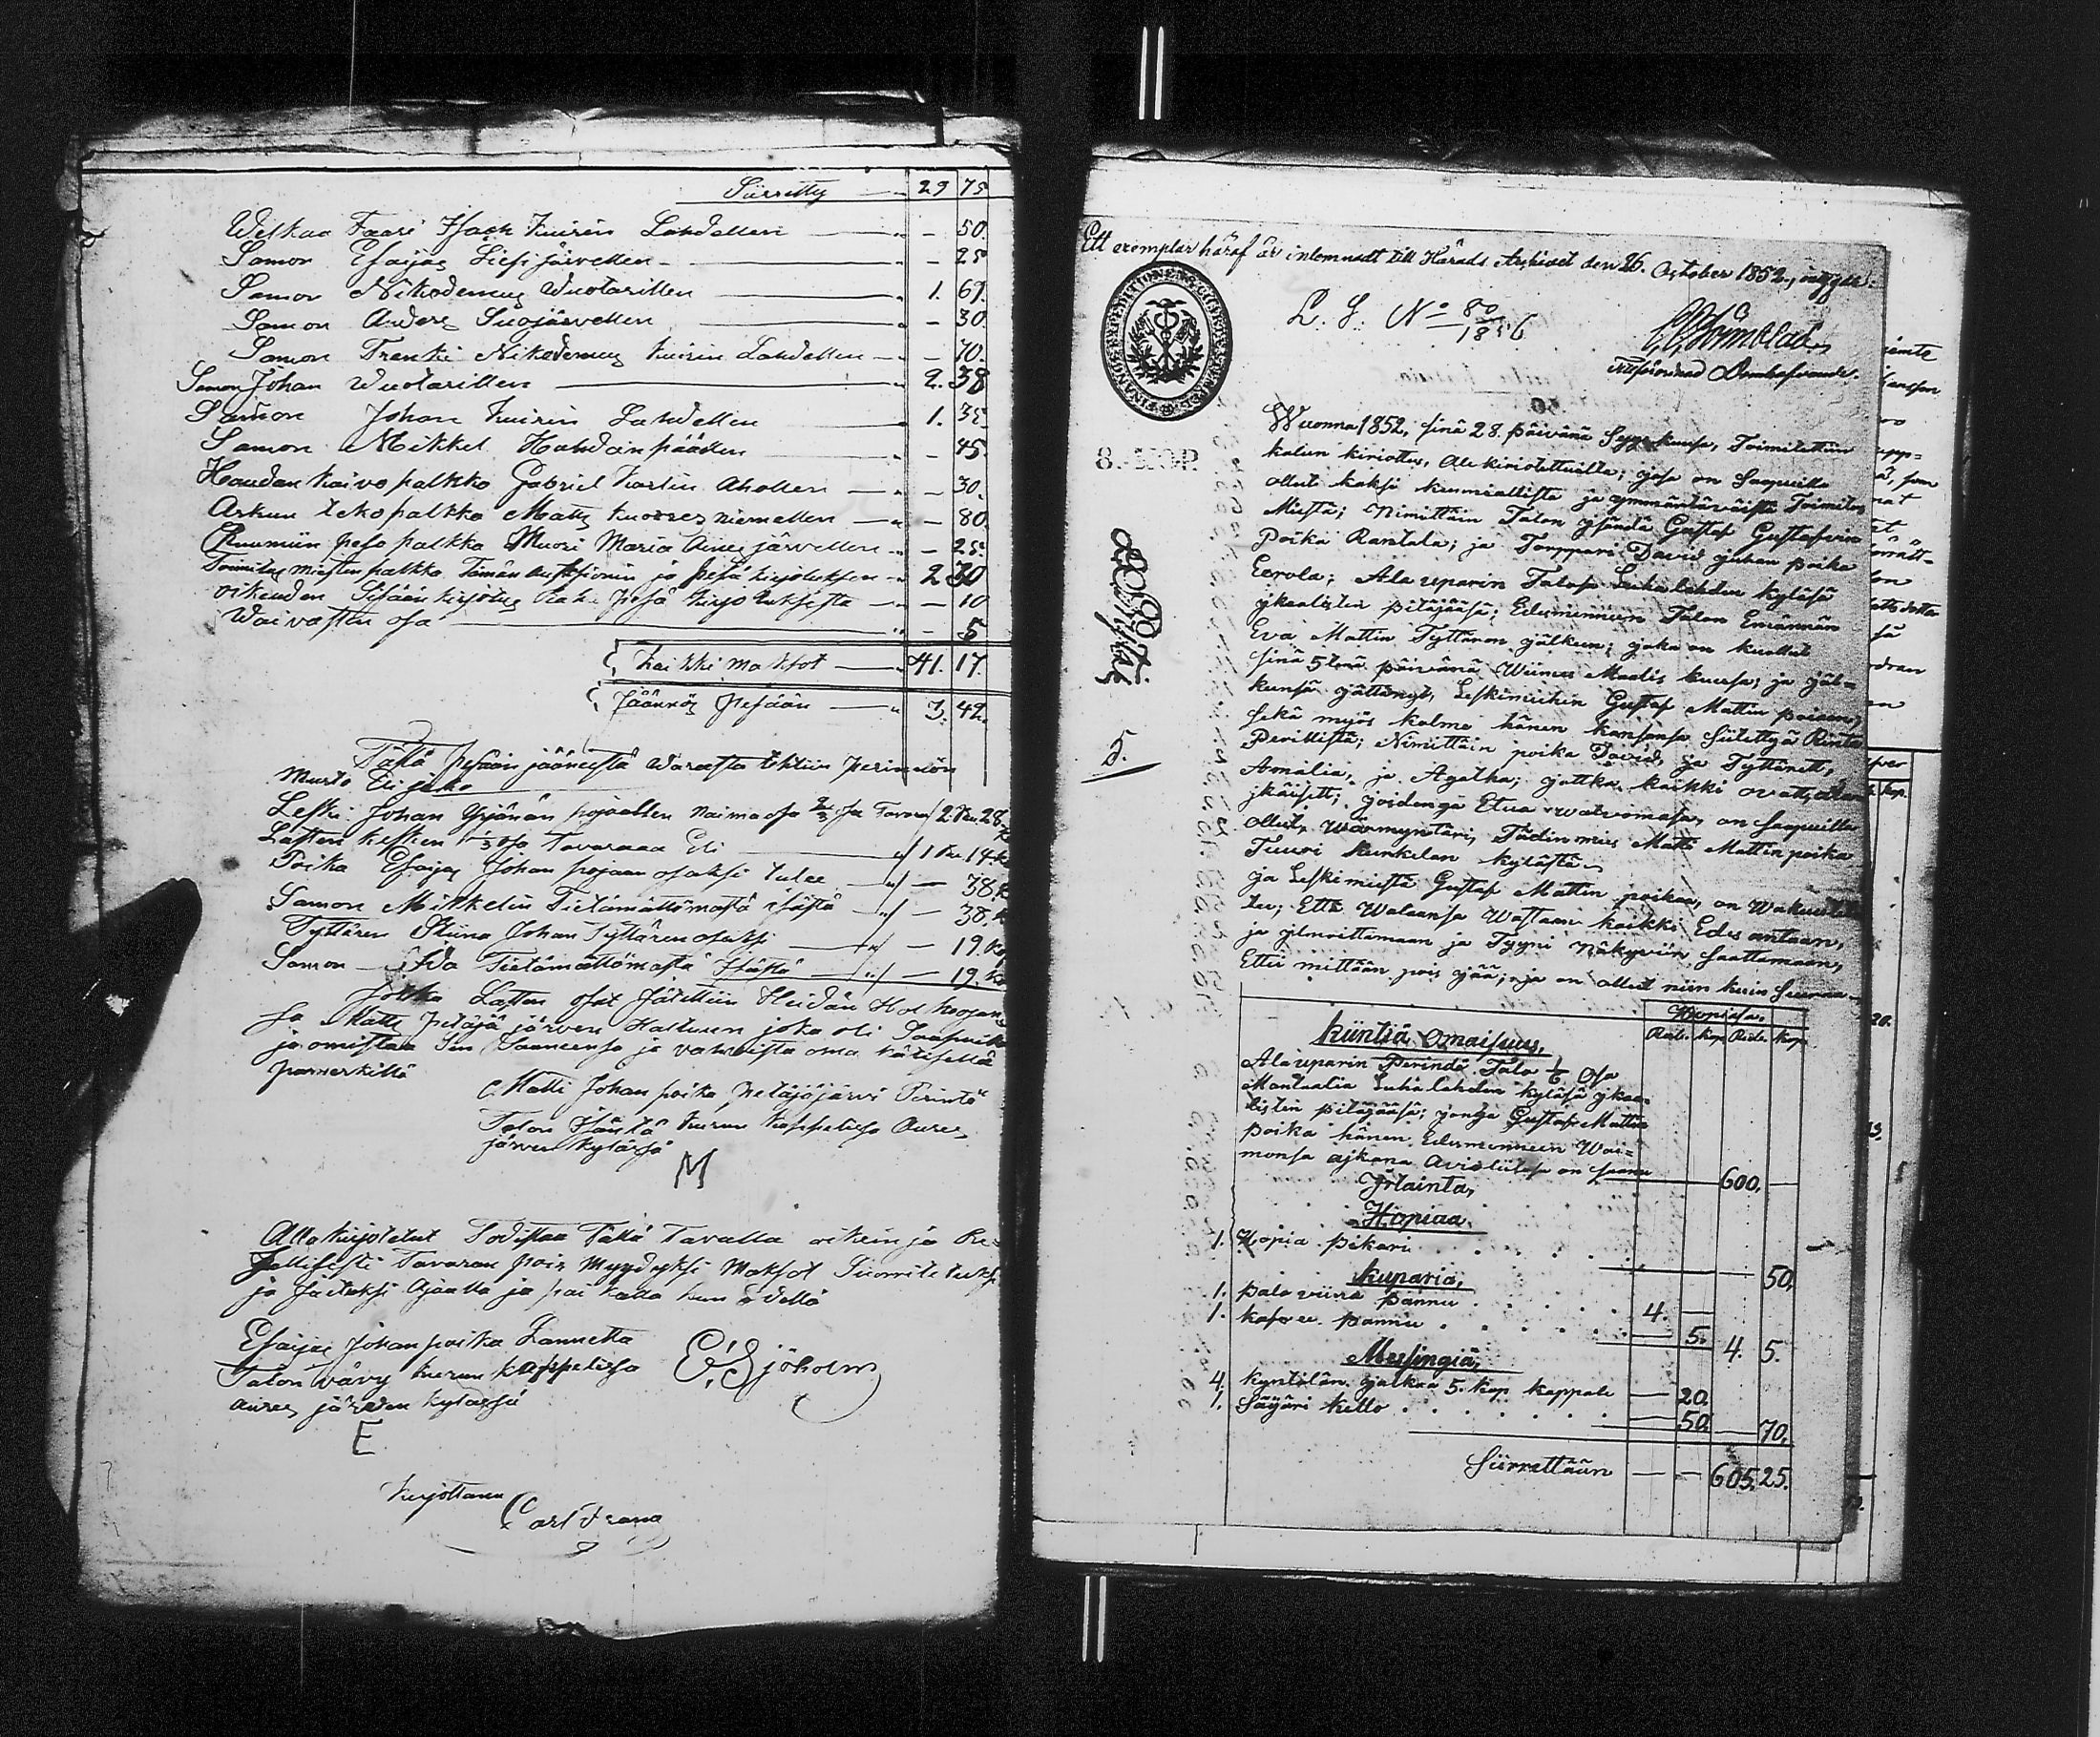 Siirretty — 29 75
Welkaa Faari Isack Kuirin Lahdellen — " — 50.
Samon Esaijas Liesijärvellen — " — 25
Samon Nikodemus Wuotarillen — " 1. 67.
Samon Anders Suojärvellen — " — 30.
Samon Frenki Nikodemus Kuirin Lahdellen — " — 70.
Samon Johan Wuotarillen — " 2. 38
Samon Johan Kuirin Lahdellen — 1. 35
Samon Mikkel Hahdanpäällen — " — 45.
Haudan kaivo palkko Gabriel Aholten — " — 30.
Arkun teko palkko Matts niemellen — " — 80.
Ruumiin peso palkka Muori Maria Aures järvellen — " — 25.
Toimitus miesten palkko Tämän auksionin ja pesä kirjotuksen — " 2 30
oikeuden Sisään kirjotus Raha pesä kirjotuksista — " — 10
Waivasten osa — " — 5
Kaikki maksot — " 41. 17.
Jäännös Pesään — " 3. 42.
Tästä Pesään jääneestä warasta tehtiin perinnön
Murto Eli jako
Leski Johan Yrjänän pojallen naima osa 2/3 Tavara 2 Ru. 28
Lasten kesken 1/3 osa Tavaraaa Eli — 1 Ru. 14
Poika Esaijas Johan pojan osaksi tulee — " — 38
Samon Mikkelin Tietämättömästä isästä — " — 38.
Tyttären Stiina Johan Tyttären osaksi — " — 19.
Samon — Ida Tietämättömästä Isästä — " — 19.
Jotka Lasten osat Jätettiin Heidän Hol hoojan
sa Matts Petäjä järven Haltuun joka oli Saapuilla
ja omistaa Sen Saaneensa ja vahvista oma kätisellä
puumerkillä
Matti Johan poika Petäjäjärvi Perintö
Talon Isäntä kurun kappelissa Aures
järven kylässä
M
Alla kirjotetut Todistaa Tällä Tavalla oikein ja Re
hellisesti Tavaran pois myydyksi maksot Suorite tuksi
ja Jaetuksi Ajalla ja pai kalla kun edellä
Esaijas Johan poika Lannetta
Talon vävy kurun kappelissa
aures järven kylässä
E
E. Sjöholm
Kirjottanu
Carl Frana
Ett exemplar häraf är inlemnadt till Härads Archivet den 26. October 1852, intygar:
L. S. No 80/1856
Tillförordnad Domhafvande.
5.
Wuonna 1852, sinä 28. päivänä Syys kuusa, Toimitettiin
kalun kirjottus, Ale kirjotettuilta; josa on Saapuilla
ollut kaksi kunniallista ja ymmärtäväistä Toimitus
Miestä; Nimittäin Talon ysändä Gustaf Gustafvin
Poika Rantala; ja Torppari David juhan poika
Eerola; Ala uparin Talosa Luhalahden kyläsä
ykaalisten pitäjääsä; Edesmenneen Talon Emännän
Eva Mattin Tyttären jälkeen; joka on kuollut
sinä 5tenä päivänä Wiimes Maalis kuusa; ja jäl=
kensä jättänyt, Leskimiehen Gustaf Mattin pojan,
sekä myös kolme hänen kansansa Siitettyä Rinta
Perillistä; Nimittäin poika David, ja Tyttäret,
Amalia, ja Agatha; jottka kaikki ovatt ala
jkäisett; joidenga Etua walvomasa, on saapuilla
ollut, wärmyntäri, Tädin mies Matti Mattin poika
Tuuri Kunkelan kylästä.
ja Leskimiestä Gustaf Mattin poikaa, on Wakuute
ttu; Että Walaansa Wastaan kaikki Edes antaan,
ja ylmoittamaan ja Tyyni Näkyviin saattamaan,
Ettei mittään pois jää; ja on ollut niin kuin Seuraa
Hopiasa.
Rubl. Kop. Rubl. Kop.
Kiintiä Omaisuus.
Ala uparin Perindö Talo 1/6 Osa
Mantaalia Luhalahden kyläsä ykaa=
listen pitäjääsä; jonga Gustaf Mattin
poika hänen Edesmenneen Wai=
monsa ajkana Avioliitosa on saanu — 600. —
Irtainta,
Hopiaa.
1. Hopia pikari . . . — 50.
Kuparia,
1. palo viina pannu . . . 4. —
1. kafvee pannu . . . — 5. 4. 5.
Messingiä,
4. kyntölän jalkaa 5. kop kappale — 20.
1. Säyäri kello . . . — 50. — 70.
Siirrettään — — 605. 25.